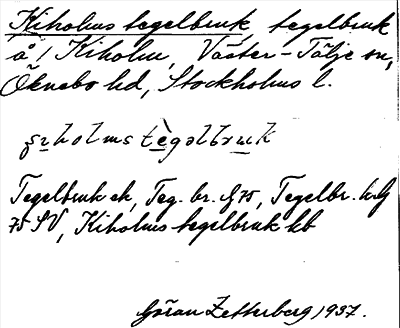 Kiholms tegelbruk, tegelbruk
å Kiholm, Väster-Tälje sn,
Öknebo hd, Stockholms l.
tegəlbruk
Tegelbruk ek, Teg. br. 75, Tegelbr.
75 SV, Kiholms tegelbruk kb
Göran Zetterberg 1937.